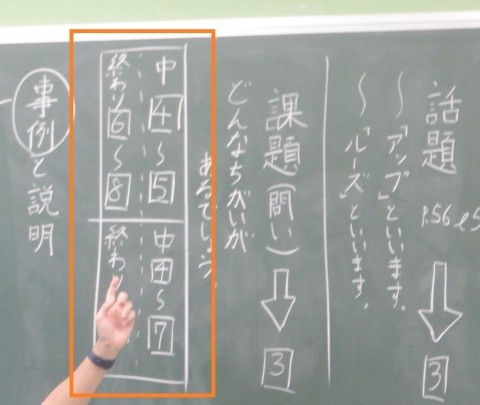 話題 P.56 ℓ5 ⇩ 3
〜「アップ」といいます。
〜「ルーズ」といいます。
課題(問い) ⇩ 3
どんなちがいが
あるでしょう。
中 4〜5
終わり 6〜8
中 4〜7
終わ
事例と説明